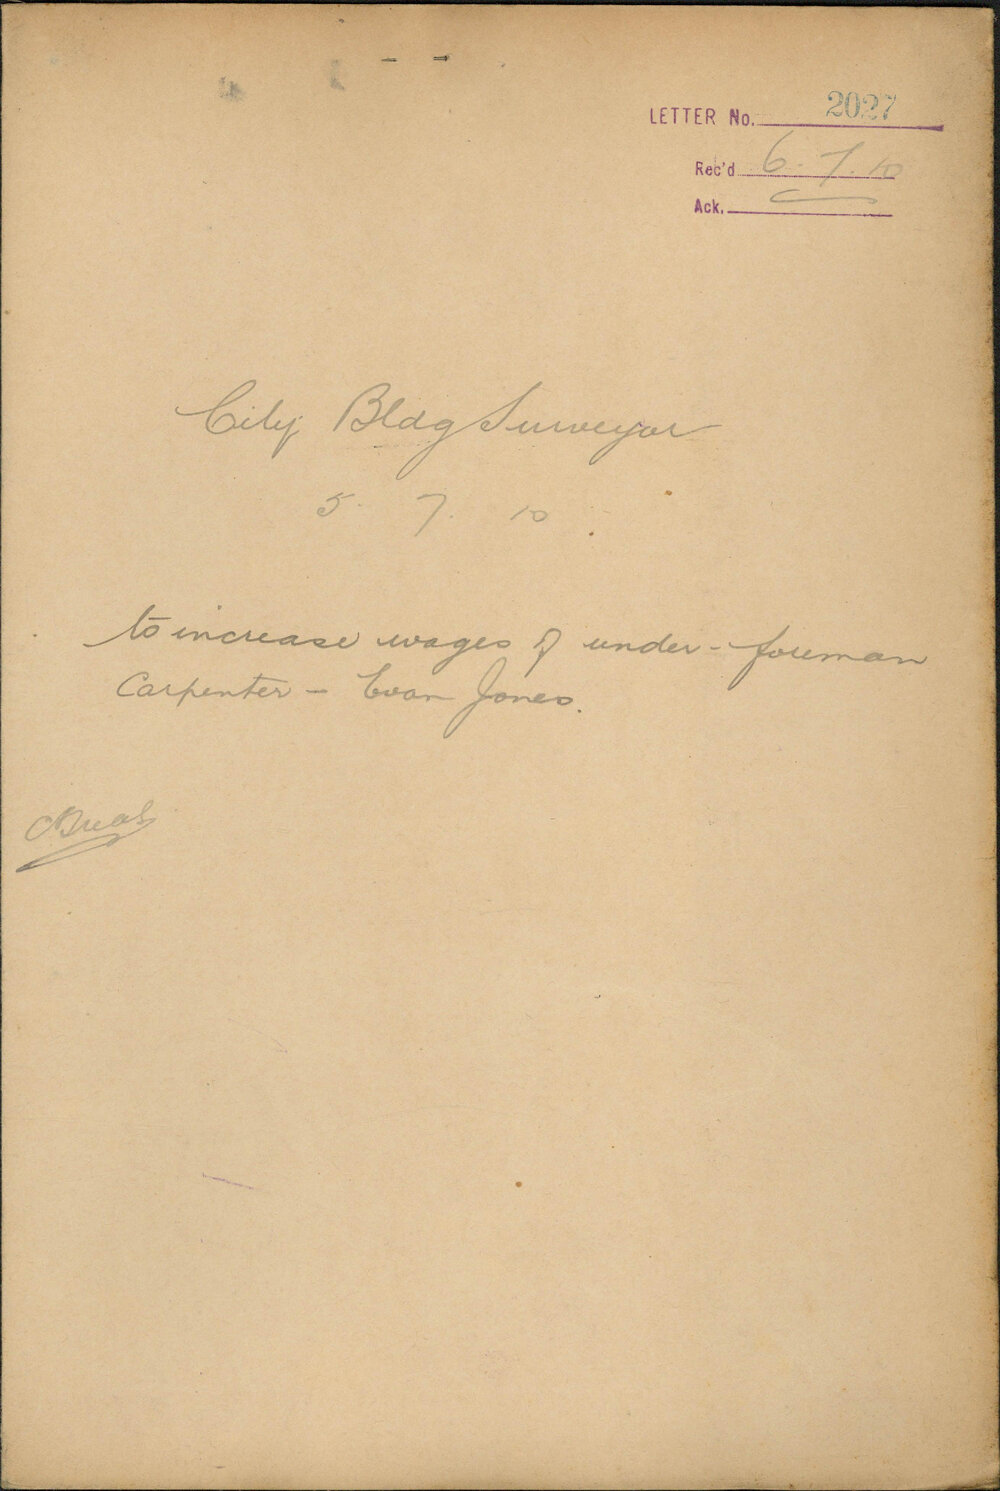 LETTER No. 2027
Rec'd 6.7.10
Ack.
City Bldg Surveyor
5. 7. 10.
to increase wages of under-foreman
Carpenter - Evan Jones.